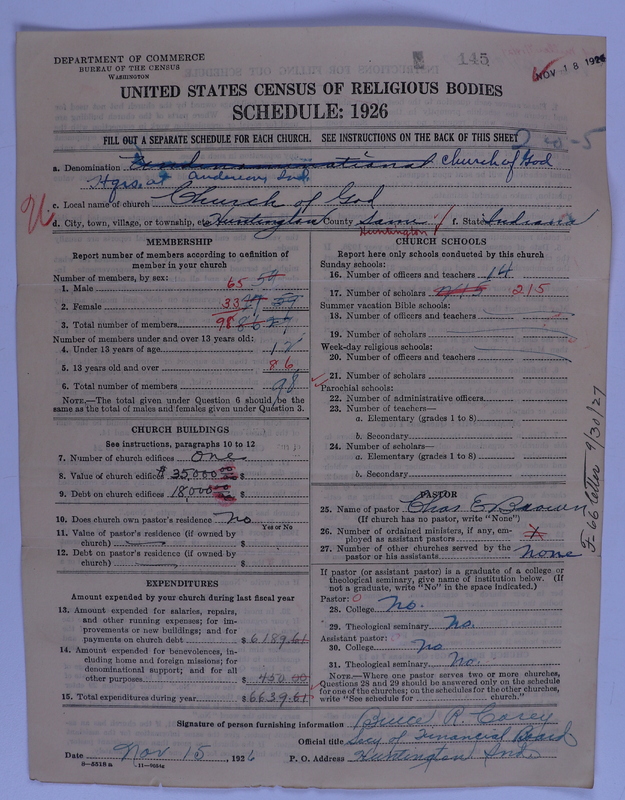 DEPARTMENT OF COMMERCE
BUREAU OF THE CENSUS
WASHINGTON
145
NOV 18 1926
UNITED STATES CENSUS OF RELIGIOUS BODIES
SCHEDULE: 1926
FILL OUT A SEPARATE SCHEDULE FOR EACH CHURCH. SEE INSTRUCTIONS ON THE BACK OF THIS SHEET
a. Denomination Church of God
Hqrs. at Anderson, Ind.
c. Local name of church Church of God
d. City, town, village, or township, etc. Huntington County Same f. State Indiana
Huntington
MEMBERSHIP
Report number of members according to definition of
member in your church
Number of members, by sex:
1. Male 65
2. Female 33
3. Total number of members 98
Number of members under and over 13 years old:
4. Under 13 years of age 12
5. 13 years old and over 86
6. Total number of members 98
NOTE.—The total given under Question 6 should be the
same as the total of males and females given under Question 3.
CHURCH BUILDINGS
See instructions, paragraphs 10 to 12
7. Number of church edifices One
8. Value of church edifices $35,000 $
9. Debt on church edifices 18,000 $
10. Does church own pastor's residence No
Yes or No
11. Value of pastor's residence (if owned by
church) $
12. Debt on pastor's residence (if owned by
church) $
EXPENDITURES
Amount expended by your church during last fiscal year
13. Amount expended for salaries, repairs,
and other running expenses; for im-
provements or new buildings; and for
payments on church debt $ 6189.61
14. Amount expended for benevolences, in-
cluding home and foreign missions; for
denominational support; and for all
other purposes $ 450.00
15. Total expenditures during year $ 6639.61
CHURCH SCHOOLS
Report here only schools conducted by this church
Sunday schools:
16. Number of officers and teachers 14
17. Number of scholars 215
Summer vacation Bible schools:
18. Number of officers and teachers
19. Number of scholars
Week-day religious schools:
20. Number of officers and teachers
21. Number of scholars
Parochial schools:
22. Number of administrative officers
23. Number of teachers—
a. Elementary (grades 1 to 8)
b. Secondary
24. Number of scholars—
a. Elementary (grades 1 to 8)
b. Secondary
PASTOR
25. Name of pastor Chas. E. Brown
(If church has no pastor, write "None")
26. Number of ordained ministers, if any, em-
ployed as assistant pastors
27. Number of other churches served by the
pastor or his assistants None
If pastor (or assistant pastor) is a graduate of a college or
theological seminary, give name of institution below. (If
not a graduate, write "No" in the space indicated.)
Pastor:
28. College No.
29. Theological seminary No.
Assistant pastor:
30. College No
31. Theological seminary No.
NOTE.—Where one pastor serves two or more churches,
Questions 28 and 29 should be answered only on the schedule
for one of the churches; on the schedules for the other churches,
write "See schedule for church."
F-66 letter 9/30/27
Signature of person furnishing information Bruce R. Corey
Official title Secy of Financial Board
Date Nov 15, 1926 P. O. Address Huntington Ind.
8—5518a 11—9084